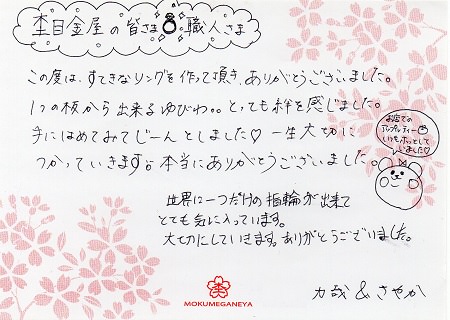 杢目金屋の皆さま 職人さま
この度は、すてきなリングを作って頂き、ありがとうございました。
1つの板から出来るゆびわ。。とっても絆を感じました。
手にはめてみてじーんとしました♡ 一生大切に
つかっていきます。本当にありがとうございました。
お店での
アップルティー
いつもホッとして
いました♡
世界に一つだけの指輪が出来て
とても気に入っています。
大切にしていきます。ありがとうございました。
力哉 & さやか
MOKUMEGANEYA